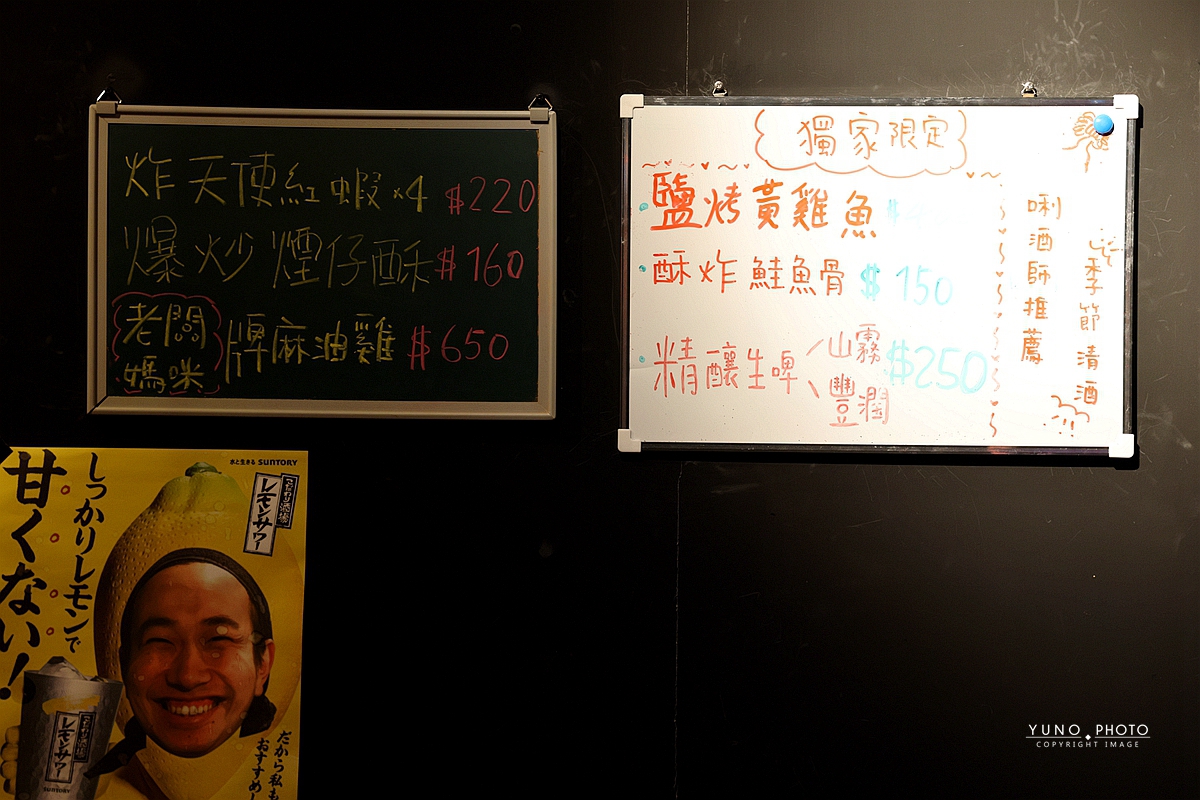 炸天使紅蝦x4 $220
爆炒煙仔酥 $160
老闆
媽咪
牌麻油雞 $650
獨家限定
鹽烤黃雞魚
酥炸鮭魚骨 $150
精釀生啤
山霧
豐潤
$250
季節清酒
唎酒師推薦
水と生きる SUNTORY
こだわり酒場
レモンサワー
しっかりレモンで
甘くない!
こだわり酒場
レモンサワー
SUNTORY
だから私も
おすすめし
YUNO PHOTO
COPYRIGHT IMAGE